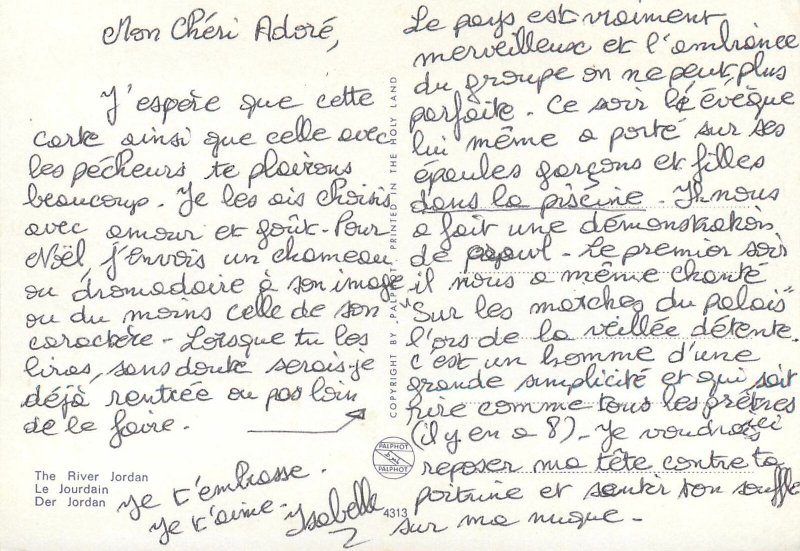 Mon Chéri Adoré,
J'espère que cette
carte ainsi que celle avec
les pécheurs te plairons
beaucoup. Je les ais choisis
avec amour et goût. Pour
Noël, j'envois un chameau
ou dromadaire à son image
ou du moins celle de son
caractère - Lorsque tu les
liras, sans doute serais-je
déjà rentrée ou pas loin
de le faire.
Le pays est vraiment
merveilleux et l'ambiance
du groupe on ne peut plus
parfaite. Ce soir l'évêque
lui même a porté sur ses
épaules garçons et filles
dans la piscine. Il nous
a fait une démonstration
de crawl. Le premier soir
il nous a même chanté
"Sur les marches du palais"
l'ors de la veillée détente.
c'est un homme d'une
grande simplicité et qui sait
rire comme tous les prêtres
(il y en a 8). Je voudrais ici
reposer ma tête contre ta
poitrine et sentir ton souffle
sur ma nuque.
Je t'embrasse.
Je t'aime. Isabelle
The River Jordan
Le Jourdain
Der Jordan
COPYRIGHT BY PALPHOT, PRINTED IN THE HOLY LAND
PALPHOT
PALPHOT
4313